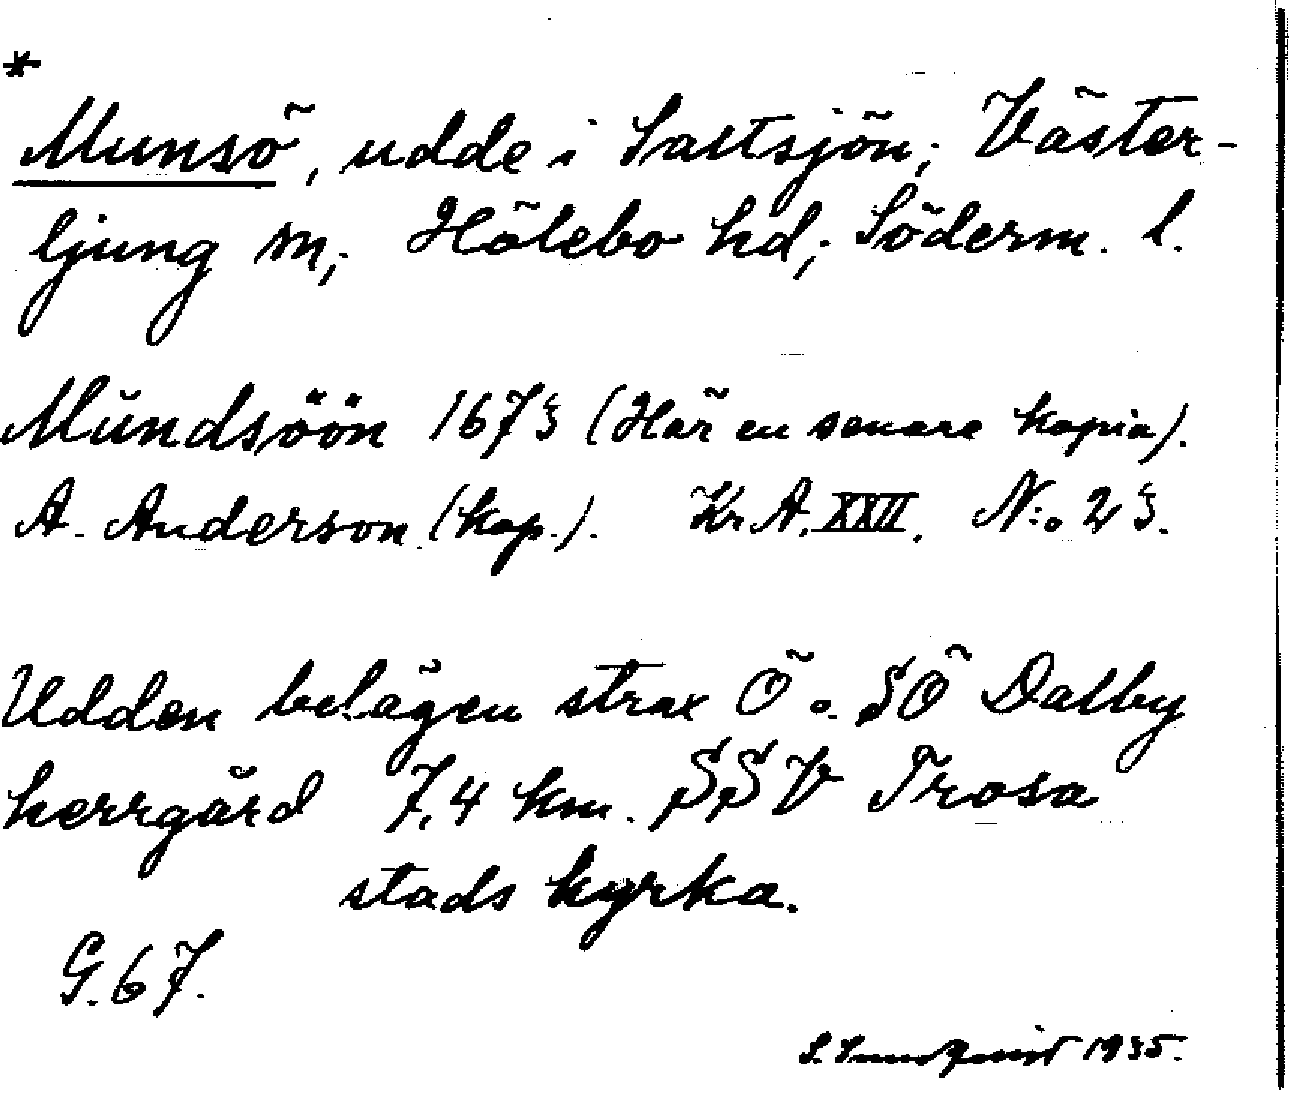 *
Munsö, udde i Saltsjön; Väster-
ljung sn; Hölebo hd; Söderm. l.
Mündsöön 1673 (Här en senare kopia).
A. Anderson (kop.). Kr.A. XXII. N:o 23.
Udden belägen strax Ö o. SÖ Dalby
herrgård 7,4 km. SSV Trosa
stads kyrka.
G. 67.
S. Lundquist 1935.